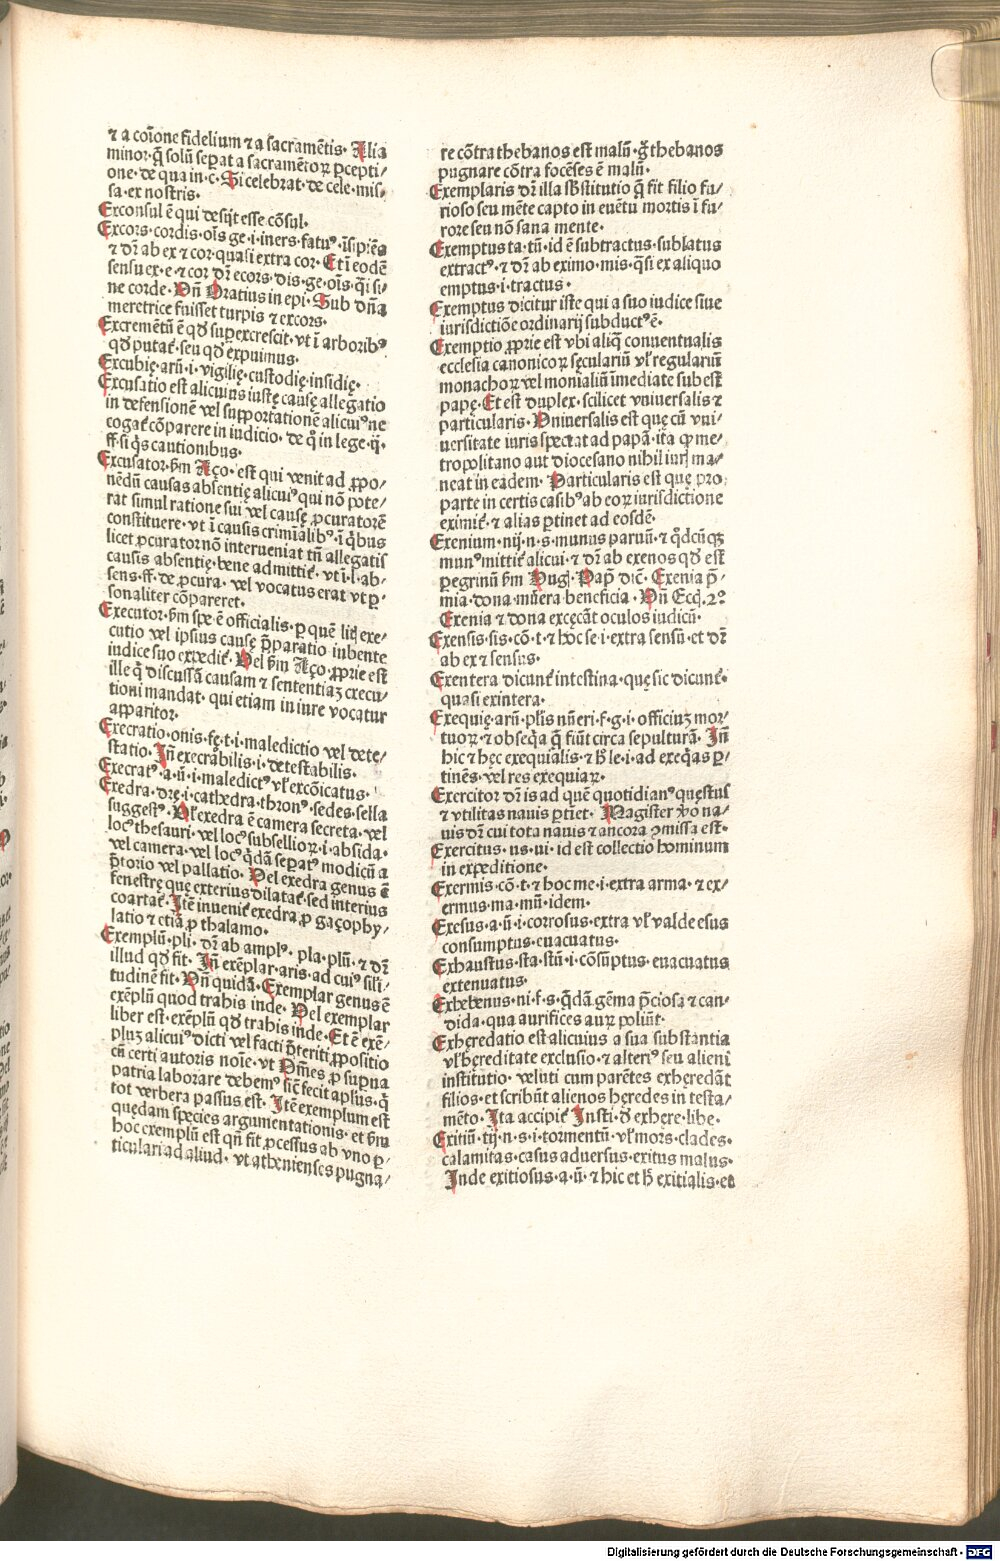 ⁊ a coı̄one fidelium ⁊ a sacramētis. Alia
minor. q̄ solū sepat a sacramētoꝝ ꝑcepti/
one. de qua in. c. Si celebrat. de cele. mis/
sa. ex nostris.
Exconsul ē qui desijt esse cōsul.
Excors. cordis. oı̄s ge. i. iners. fatuꝰ. ı̄sipiēs
⁊ dr̄ ab ex ⁊ cor. quasi extra cor. Et ī eodē
sensu ex. e. ⁊ cor dr̄ ecors. dis. ge. oı̄s. q̄si si/
ne corde. Vn̄ Oratius in epi. Sub dn̄a
meretrice fuisset turpis ⁊ excors.
Excremētū ē qd̄ suꝑexcrescit. vt ī arboribꝰ
qd̄ putat᷑. seu qd̄ expuimus.
Excubię. arū. i. vigilię. custodię. insidię.
Excusatio est alicuius iustę causę allegatio
in defensionē vel supportationē alicuiꝰ ne
cogat᷑ cōparere in iudicio. de q̊ in lege. ij.
ff. si q̇s cautionibus.
Excusator. s̄m Aço. est qui venit ad ꝓpo/
nēdū causas absentię alicuiꝰ qui nō pote/
rat simul ratione sui vel causę ꝓcuratorē
constituere. vt ī causis crimīalibꝰ. ī q̇bus
licet ꝓcurator nō interueniat tn̄ allegatis
causis absentię. bene admittit᷑. vt ī. l. ab/
sens. ff. de ꝓcura. vel vocatus erat vt ꝑ/
sonaliter cōpareret.
Executor. s̄m spe ē officialis. ꝑ quē lit exe/
cutio vel ipsius causę p̄paratio iubente
iudice suo expedit᷑. Vel s̄m Aço. ꝓprie est
ille q̇ discussā causam ⁊ sententiaꝫ execu/
tioni mandat. qui etiam in iure vocatur
apparitor.
Execratio. onis. fę. t. i. maledictio vel dete/
statio. Jn̄ execrabilis. i. detestabilis.
Execratꝰ. a. ū. i. maledictꝰ vl̓ excōicatus.
Exedra. drę. i. cathedra. thronꝰ. sedes. sella
suggestꝰ. Vl̓ exedra ē camera secreta. vel
locꝰ thesauri. vel locꝰ subsellioꝝ. i. absida.
vel camera. vel locꝰ q̇dā sepatꝰ modicū a
p̄torio vel pallatio. Vel exedra genus ē
fenestrę quę exterius dilatat᷑. sed interius
coartat᷑. Jtē inuenit᷑ exedra ꝓ gaçophy/
latio ⁊ etiā ꝓ thalamo.
Exemplū. pli. dr̄ ab amplꝰ. pla. plū. ⁊ dr̄
illud qd̄ fit. Jn̄ exēplar. aris. ad cuiꝰ sili/
tudinē fit. Vn̄ quidā. Exemplar genus ē
exēplū quod trahis inde. Vel exemplar
liber est. exēplū qd̄ trahis inde. Et ē exē/
pluꝫ alicuiꝰ dicti vel facti p̄teriti ꝓpositio
cū certi autoris noı̄e. vt Om̄es ꝓ supna
patria laborare debemꝰ sic̄ fecit aplꝰus. q̇
tot verbera passus est. Jtē exemplum est
quędam species argumentationis. et s̄m
hoc exemplū est qn̄ fit ꝓcessus ab vno ꝑ/
ticulari ad aliud. vt athenienses pugna/
re cōtra thebanos est malū. g̊ thebanos
pugnare cōtra focēses ē malū.
Exemplaris dr̄ illa sb̄stitutio q̄ fit filio fu/
rioso seu mēte capto in euētu mortis ī fu/
rore seu nō sana mente.
Exemptus ta. tū. id ē subtractus. sublatus
extractꝰ. ⁊ dr̄ ab eximo. mis. q̄si ex aliquo
emptus. i. tractus.
Exemptus dicitur iste qui a suo iudice siue
iurisdictiōe ordinarij subductꝰ ē.
Exemptio ꝓprie est vbi aliq̄ conuentualis
ecclesia canonicoꝝ sęculariū vl̓ regulariū
monachoꝝ vel monialiū īmediate subest
papę. Et est duplex. scilicet vniuersalis ⁊
particularis. Vniuersalis est quę cū vni/
uersitate iuris spectat ad papā. ita ꝙ me/
tropolitano aut diocesano nihil iur ma/
neat in eadem. Particularis est quę pro
parte in certis casibꝰ ab eoꝝ iurisdictione
eximit᷑. ⁊ alias ꝑtinet ad eosdē.
Exenium. nij. n. s. munus paruū. ⁊ q̊dcūqꝫ
munꝰ mittit᷑ alicui. ⁊ dr̄ ab exenos qd̄ est
ꝑegrinū s̄m Hug. Pap̄ dic̄. Exenia p̄/
mia. dona. mūera beneficia. Vn̄ Ecc̄. 2º
Exenia ⁊ dona excęcāt oculos iudicū.
Exensis. sis. cō. t. ⁊ hoc se. i. extra sensū. et dr̄
ab ex ⁊ sensus.
Exentera dicunt᷑ intestina. quę sic dicunt᷑.
quasi exintera.
Exequię. arū. pl̓is nūeri. f. g. i. officiuꝫ mor/
tuoꝝ. ⁊ obseq̇a q̄ fiūt circa sepulturā. Jn̄
hic ⁊ hęc exequialis. ⁊ h̓ le. i. ad exeq̇as ꝑ/
tinēs. vel res exequiaꝝ.
Exercitor dr̄ is ad quē quotidianꝰ quęstus
⁊ vtilitas nauis ꝑtiet. Magister v̊o na/
uis dr̄ cui tota nauis ⁊ ancora ꝯmissa est.
Exercitus. us. vi. id est collectio hominum
in expeditione.
Exermis. cō. t. ⁊ hoc me. i. extra arma. ⁊ ex/
ermus. ma. mū. idem.
Exesus. a. ū. i. corrosus. extra vl̓ valde esus
consumptus. euacuatus.
Exhaustus. sta. stū. i. cōsūptus. euacuatus
extenuatus.
Exhebenus. ni. f. s. q̄dā gēma p̄ciosa ⁊ can/
dida. qua aurifices auꝝ poliūt.
Exhęredatio est alicuius a sua substantia
vl̓ hęreditate exclusio. ⁊ alterꝰ seu alieni
institutio. veluti cum parētes exhęredāt
filios. et scribūt alienos hęredes in testa/
mēto. Jta accipit᷑ Jnsti. d̄ exhęre. libe.
Exitiū. tij. n. s. i. tormentū. vl̓ mors. clades.
calamitas. casus aduersus. exitus malus.
Jnde exitiosus. a. ū. ⁊ hic et h̓ exitialis. et
Digitalisierung gefördert durch die Deutsche Forschungsgemeinschaft - DFG